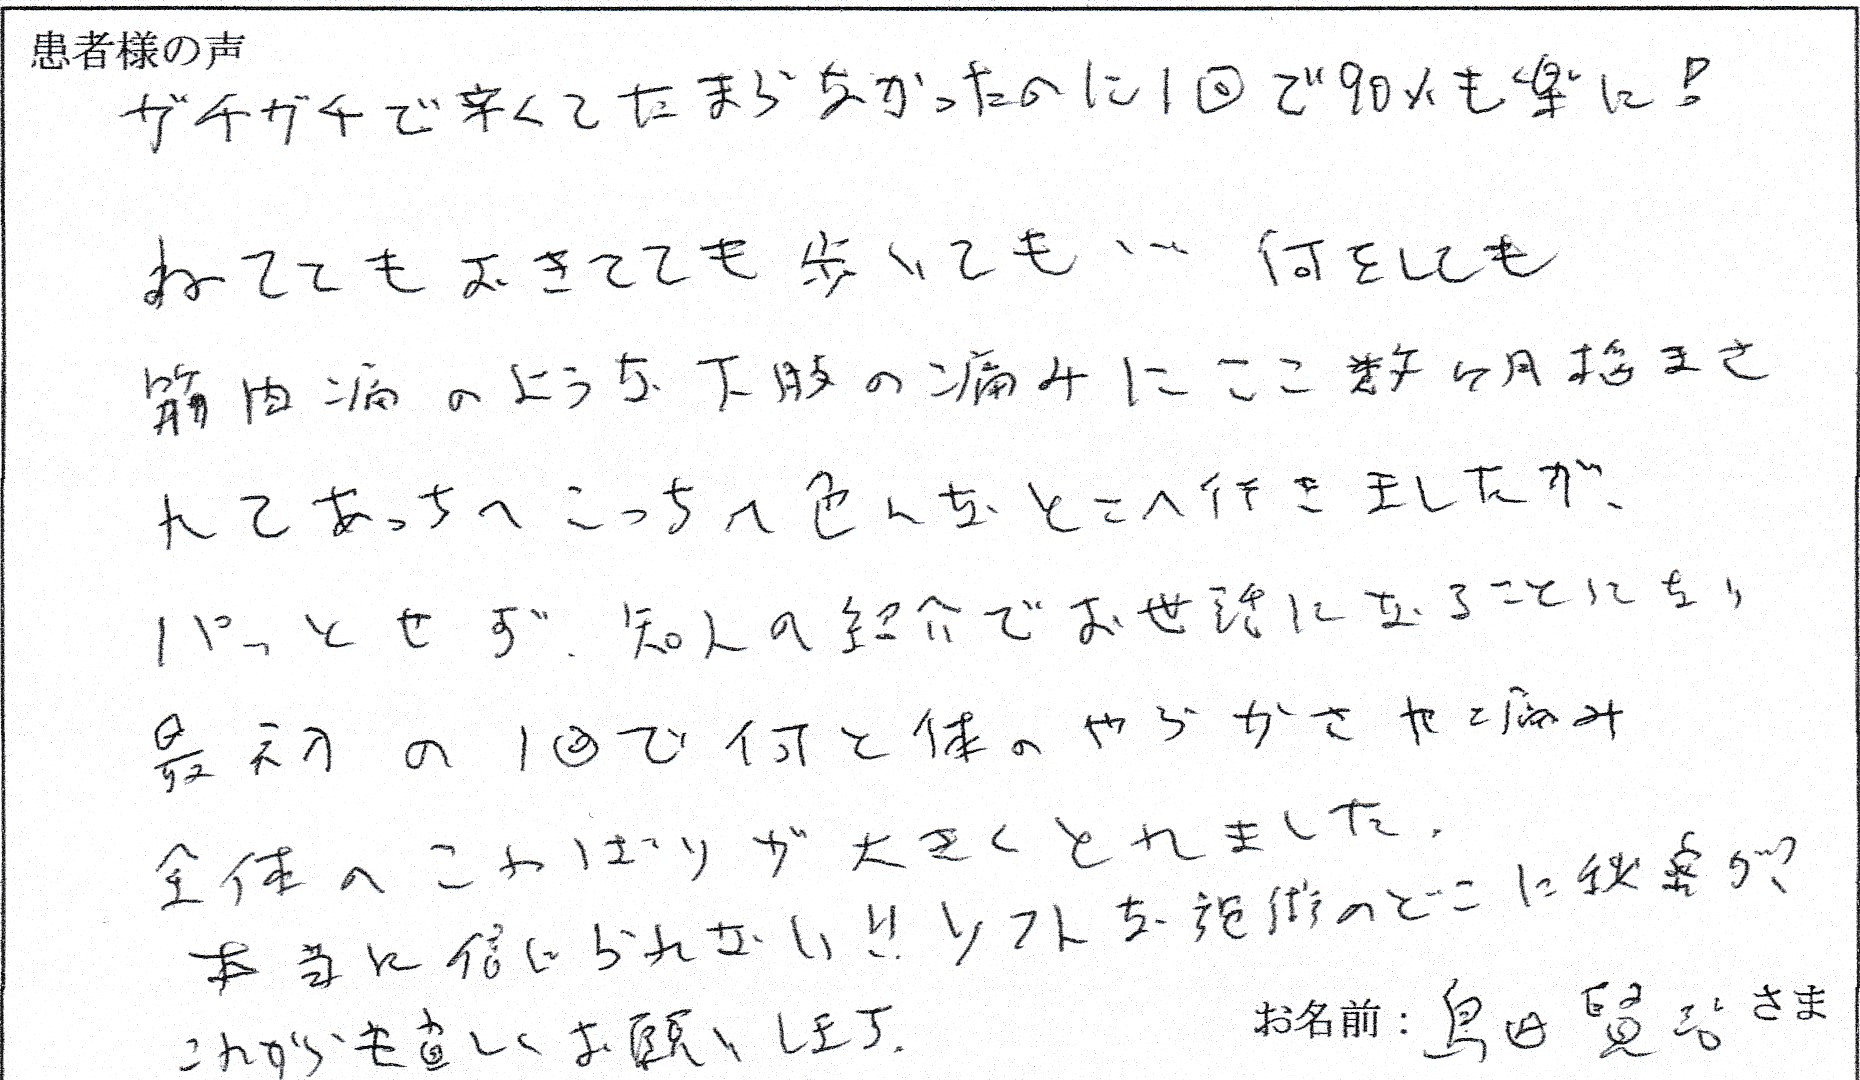 患者様の声
ガチガチで辛くてたまらなかったのに1回で90%も楽に!
ねててもおきてても歩いても… 何をしても
筋肉痛のような下肢の痛みにここ数ヶ月悩まさ
れてあっちへこっちへ色んなとこへ行きましたが、
パッとせず、知人の紹介でお世話になることになり
最初の1回で何と体のやらかさや痛み
全体のこわばりが大きくとれました。
本当に信じられない!!ソフトな施術のどこに秘密が?
これからも宜しくお願いします。
お名前:島田賢 さま